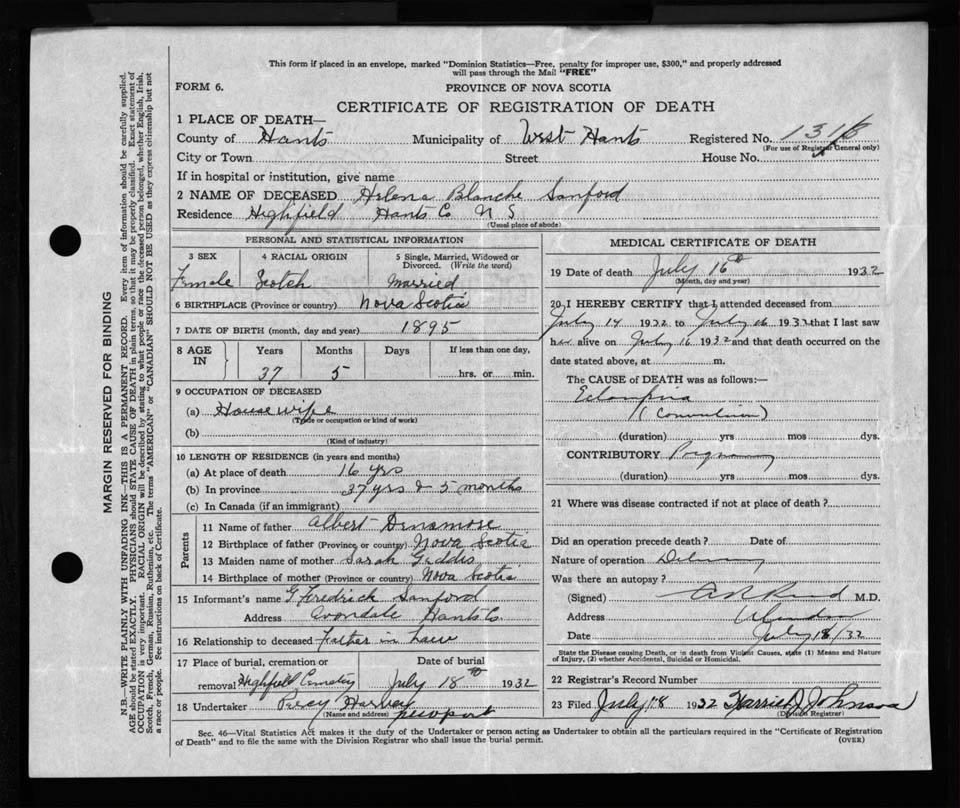 This form if placed in an envelope, marked "Dominion Statistics—Free, penalty for improper use, $300," and properly addressed
will pass through the Mail "FREE"
FORM 6.
PROVINCE OF NOVA SCOTIA
CERTIFICATE OF REGISTRATION OF DEATH
1 PLACE OF DEATH—
County of Hants Municipality of West Hants Registered No. 1318
(For use of Registrar General only)
City or Town Street House No.
If in hospital or institution, give name
2 NAME OF DECEASED Helena Blanche Sanford
Residence Highfield Hants Co N S
(Usual place of abode)
PERSONAL AND STATISTICAL INFORMATION
3 SEX 4 RACIAL ORIGIN 5 Single, Married, Widowed or
Divorced. (Write the word)
Female Scotch Married
6 BIRTHPLACE (Province or country) Nova Scotia
7 DATE OF BIRTH (month, day and year) 1895
8 AGE IN Years Months Days If less than one day,
37 5 hrs. or min.
9 OCCUPATION OF DECEASED
(a) House wife
(Trade or occupation or kind of work)
(b)
(Kind of industry)
10 LENGTH OF RESIDENCE (in years and months)
(a) At place of death 16 yrs
(b) In province 37 yrs & 5 months
(c) In Canada (if an immigrant)
Parents
11 Name of father Albert Densmore
12 Birthplace of father (Province or country) Nova Scotia
13 Maiden name of mother Sarah Geddis
14 Birthplace of mother (Province or country) Nova Scotia
15 Informant's name G. Fredrick Sanford
Address Avondale Hants Co.
16 Relationship to deceased Father in Law
17 Place of burial, cremation or Date of burial
removal Highfield Cemetery July 18th 1932
18 Undertaker Percy Harvey Newport
(Name and address)
MEDICAL CERTIFICATE OF DEATH
19 Date of death July 16th 1932
(Month, day and year)
20 I HEREBY CERTIFY that I attended deceased from
July 14 1932 to July 16 1932 that I last saw
her alive on July 16 1932 and that death occurred on the
date stated above, at m.
The CAUSE of DEATH was as follows:—
Eclampsia
(Convulsion)
(duration) yrs mos dys.
CONTRIBUTORY Pregnancy
(duration) yrs. mos. dys.
21 Where was disease contracted if not at place of death?
Did an operation precede death? Date of
Nature of operation Delivery
Was there an autopsy?
(Signed) M.D.
Address Windsor
Date July 18/32
State the Disease causing Death, or in death from Violent Causes, state (1) Means and Nature
of Injury, (2) whether Accidental, Suicidal or Homicidal.
22 Registrar's Record Number
23 Filed July 18 1932 Harried J Johnson
(Division Registrar)
Sec. 46—Vital Statistics Act makes it the duty of the Undertaker or person acting as Undertaker to obtain all the particulars required in the "Certificate of Registration
of Death" and to file the same with the Division Registrar who shall issue the burial permit.
(OVER)
MARGIN RESERVED FOR BINDING
N.B.—WRITE PLAINLY WITH UNFADING INK—THIS IS A PERMANENT RECORD. Every item of information should be carefully supplied.
AGE should be stated EXACTLY. PHYSICIANS should STATE CAUSE OF DEATH in plain terms, so that it may be properly classified. Exact statement of
OCCUPATION is very important. RACIAL ORIGIN will be described by stating to what people or race the deceased person belonged, whether English, Irish,
Scotch, French, German, Russian, Ruthenian, etc. The terms "AMERICAN" or "CANADIAN" SHOULD NOT BE USED as they express citizenship but not
a race or people. See instructions on back of Certificate.